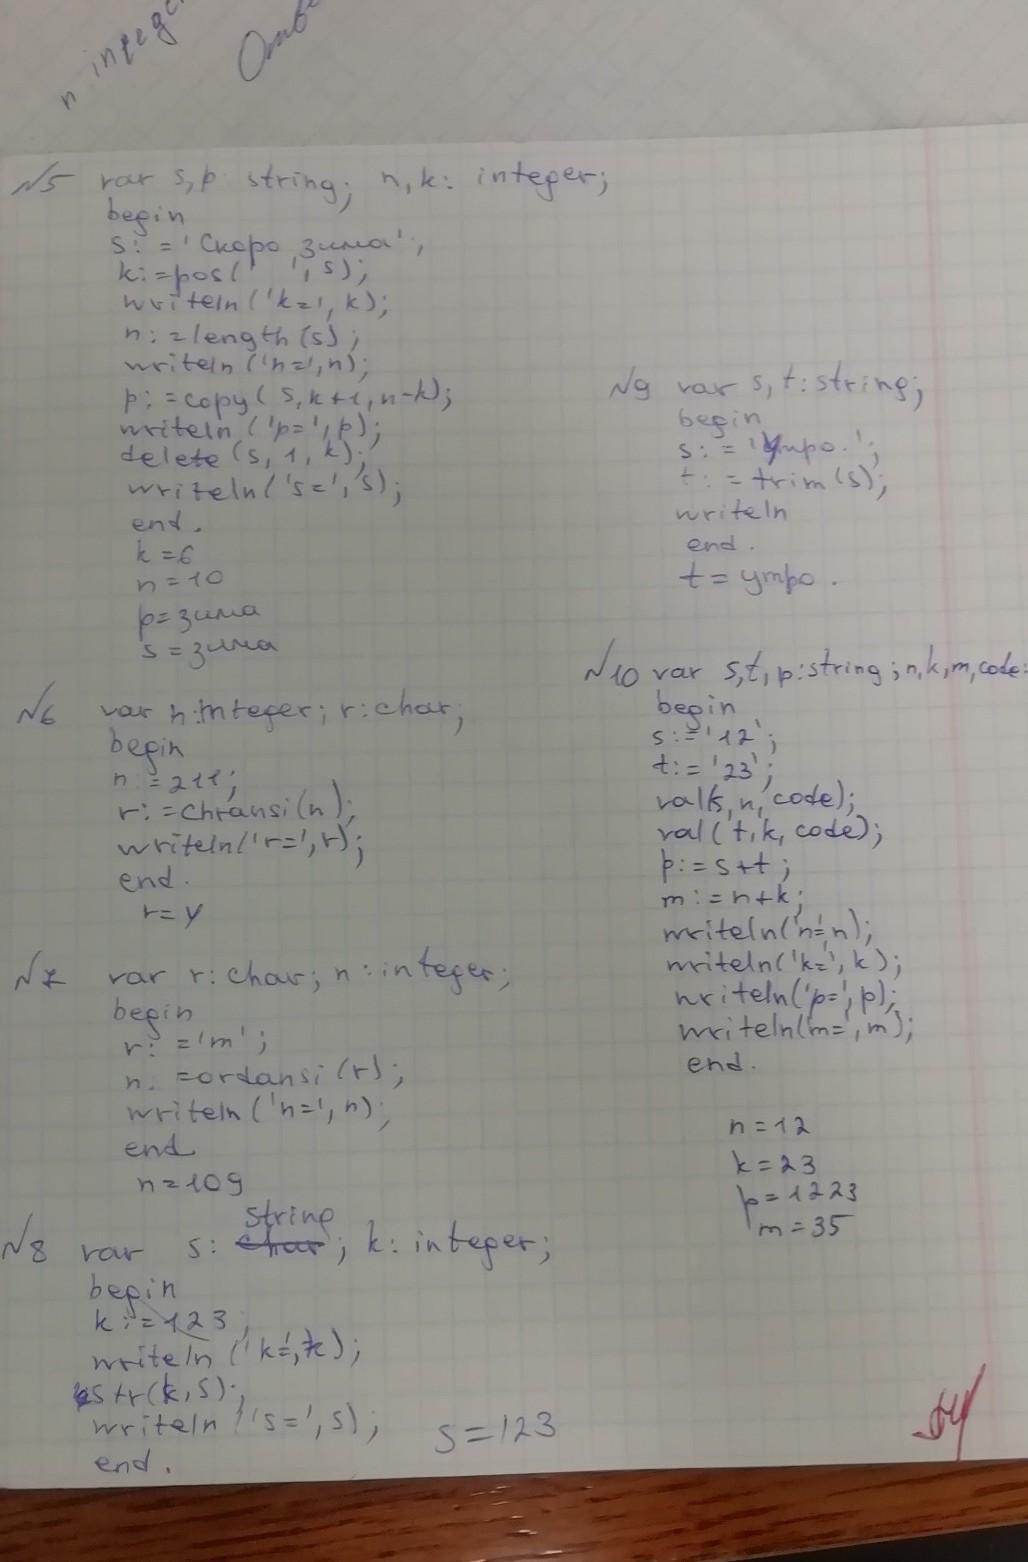 n integer
Отве
№5 var s,p: string; n,k: integer;
begin
s: = 'Скоро зима';
k:=pos(' ', s);
writeln('k=', k);
n:=length(s);
writeln('n=',n);
p:=copy(s,k+1,n-k);
writeln('p=',p);
delete(s,1,k);
writeln('s=',s);
end.
k=6
n=10
p=зима
s=зима
№6 var n:integer; r:char;
begin
n:=211;
r:=chransi(n);
writeln('r=',r);
end.
r=У
№7 var r:char; n:integer;
begin
r: ='m';
n. =ordansi(r);
writeln('n=',n);
end
n=109
string
№8 var s: char; k: integer;
begin
k:=123;
writeln('k=',k);
str(k,s);
writeln('s=',s);
end.
s=123
№9 var s,t:string;
begin
s:='Утро.';
t:=trim(s);
writeln
end.
t=утро.
№10 var s,t,p:string;n,k,m,code:
begin
s:='12';
t:='23';
val(s,n,code);
val(t,k,code);
p:=s+t;
m:=n+k;
writeln('n=',n);
writeln('k=',k);
writeln('p=',p);
writeln(m=',m);
end.
n=12
k=23
p=1223
m=35